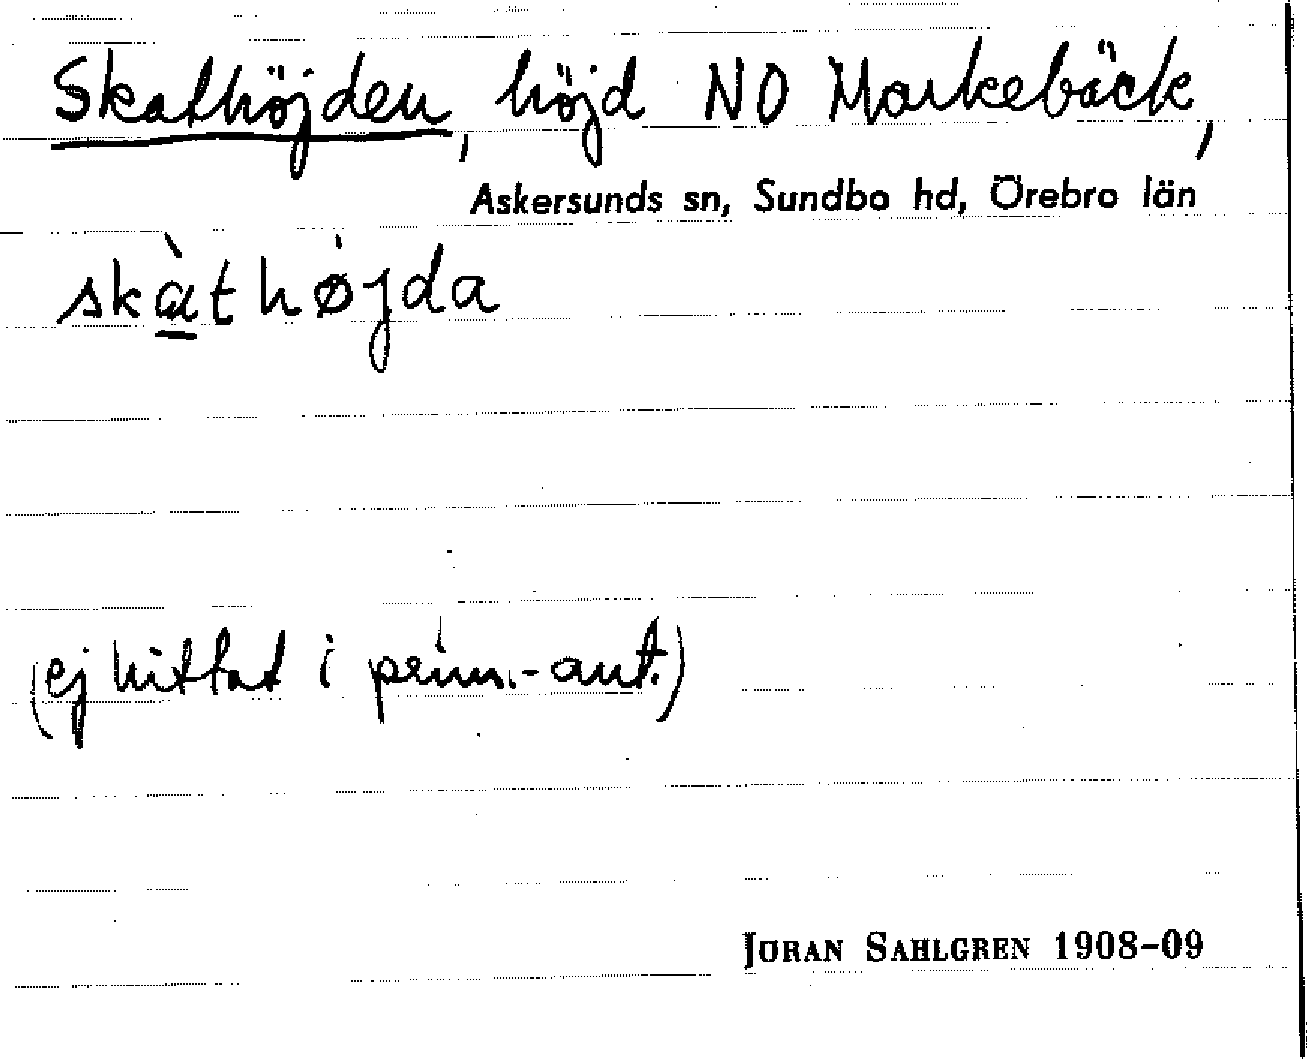 Skathöjden, höjd NO Markebäck,
Askersunds sn, Sundbo hd, Örebro län
skàthǿjda
(ej hittad i prim.-ant.)
JÖRAN SAHLGREN 1908-09